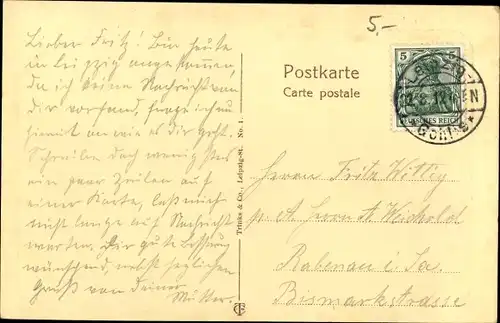 5,-
Lieber Fritz! Bin heute
in Leipzig angekommen,
da ich keine Nachricht von
dir vorfand, frage ich nun
hiermit an wie es dir geht.
Schreibe doch wenigstens
ein paar Zeilen auf
einer Karte, laß mich
nicht lange auf Nachricht
warten. Dir gute Besserung
wünschend, nebst herzlichen
Gruß von deiner
Mutter.
Trinks & Co., Leipzig-St. No. 1.
Postkarte
Carte postale
5
DEUTSCHES REICH
Herrn Fritz Wittig
p. A. Herrn A. Weichold
Rabenau i. Sa.
Bismarkstrasse